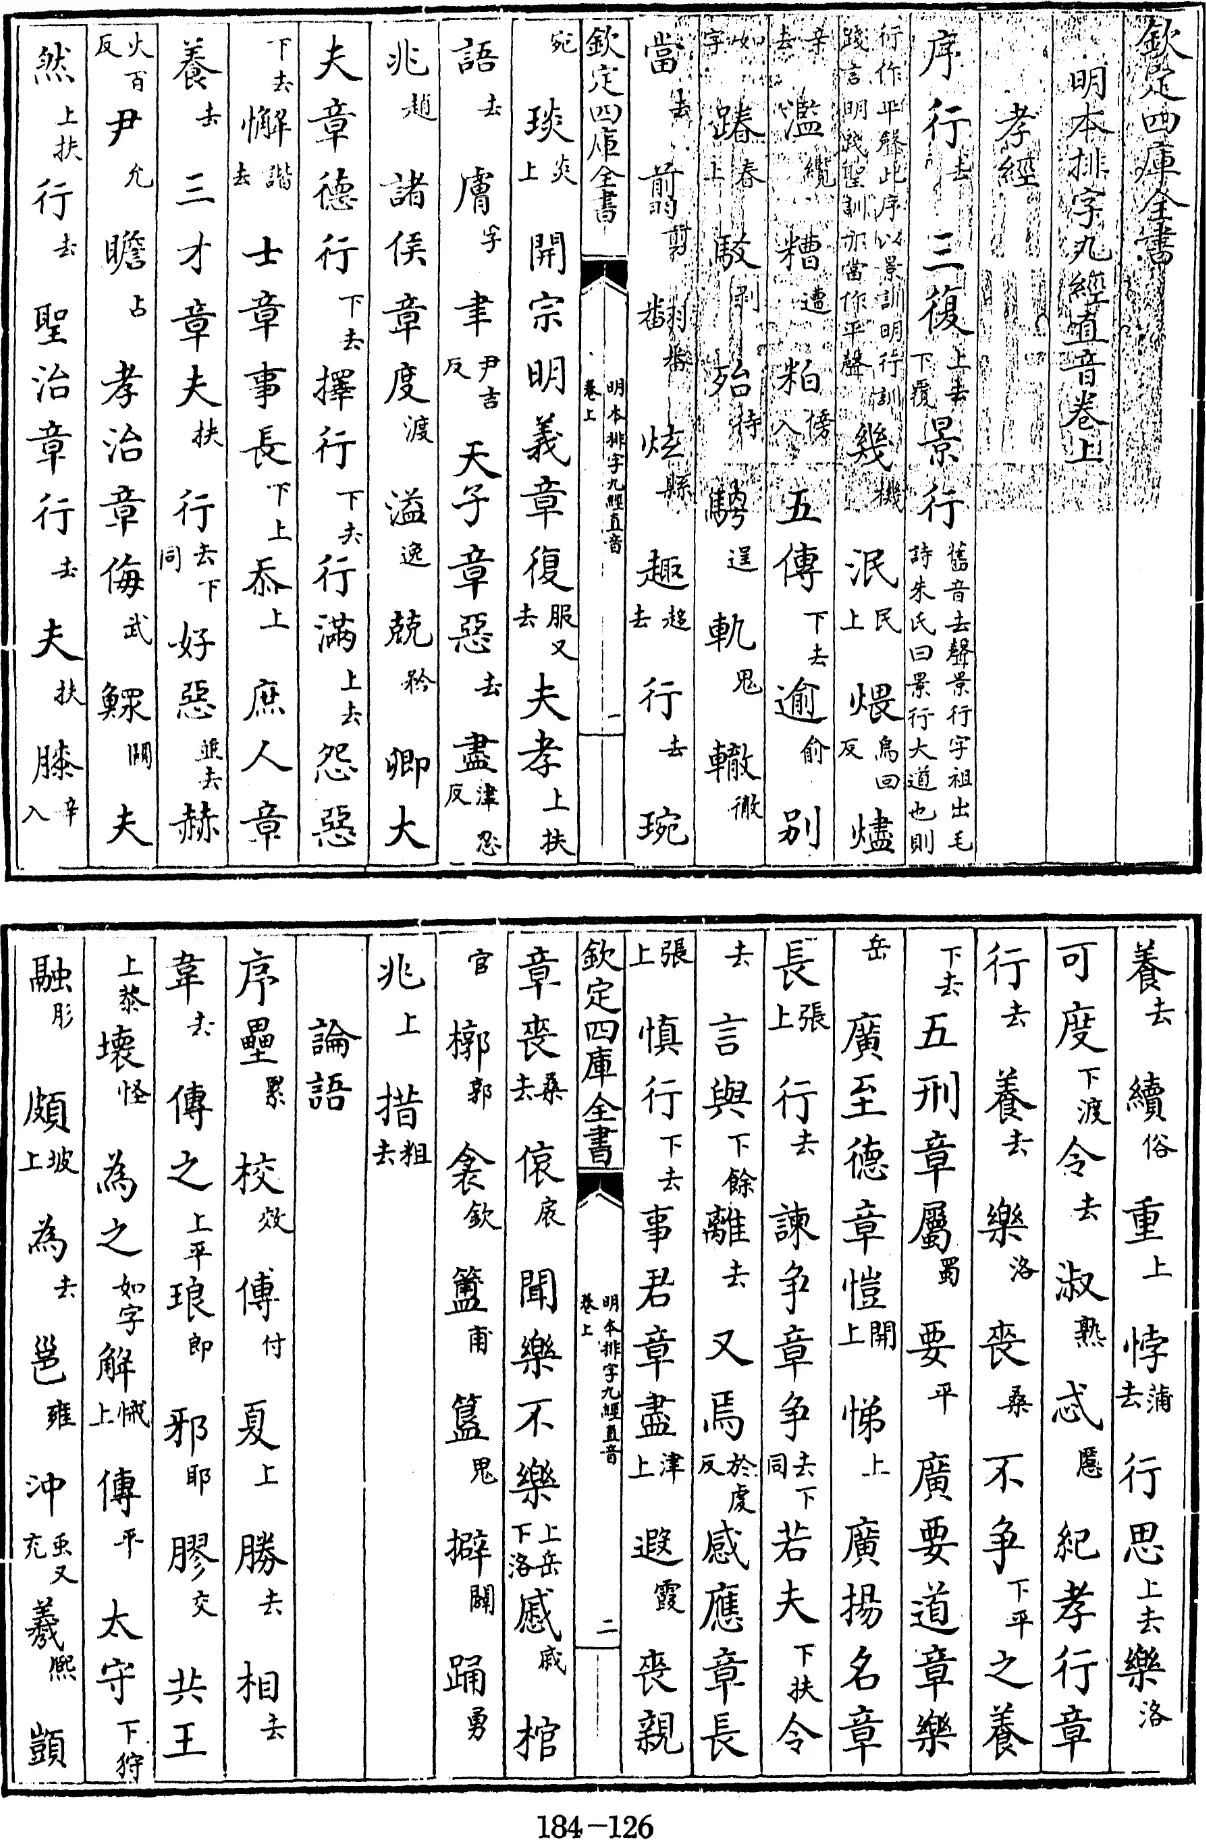 欽定四庫全書
明本排字九經直音卷上
孝經
序行去三復上去下覆景行舊音去聲景行字祖出毛詩朱氏曰景行大道也則
行作平聲此序以景訓明行訓踐言明踐聖訓亦當作平聲幾機泯民上煨烏回反燼
去濫纜糟遭粕傍入五傳下去逾俞別
如字踳春上駮剥殆待騁逞軌鬼轍徹
當去翦剪繙炫縣趣趍去行去琬
欽定四庫全書
明本排字九經直音
卷上
一
宛琰炎上開宗明義章復服又去夫孝上扶
語去膚孚聿尹吉反天子章惡去盡津忍反
兆趙諸侯章度渡溢逸兢矜卿大
夫章德行下去擇行下去行滿上去怨惡
下去懈諧去士章事長下上忝上庶人章
養去三才章夫扶行去下同好惡並去赫
火百反尹允瞻占孝治章侮武鰥關夫
然上扶行去聖治章行去夫扶膝辛入
養去續俗重上悖蒲去行思上去樂洛
可度下渡令去淑熟忒慝紀孝行章
行去養去樂洛喪桑不爭下平之養
下去五刑章屬蜀要平廣要道章樂
岳廣至德章愷開上悌上廣揚名章
長張上行去諫爭章爭去下同若夫下扶令
去言與下餘離去又焉於虔反感應章長
張上慎行下去事君章盡津上遐霞喪親
欽定四庫全書
明本排字九經直音
卷上
二
章喪桑去偯扆聞樂不樂上岳下洛慼戚棺
官槨郭衾欽簠甫簋鬼擗闢踊勇
兆上措粗去
論語
序壘累校效傅付夏上勝去相去
韋去傳之上平琅郎邪耶膠交共王
上恭壞怪為之如字解懈上傳平太守下狩
融肜頗坡上為去邕雍沖虫又充羲熙顗
184-126